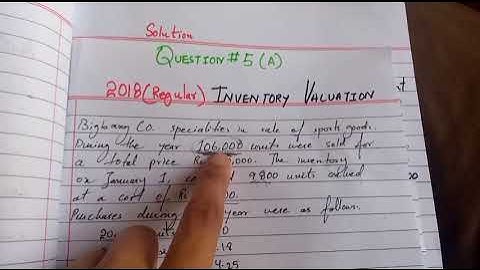 Solution
QUESTION # 5 (A)
2018 (Regular) INVENTORY VALUATION
Bigbang CO. specialities in sale of sports goods.
During the year 106,008 units were sold for
a total price 000. The inventory
on January 1, 9800 units valued
at a cost of 00.
Purchases during year were as follows.
20 0
.18
4.25